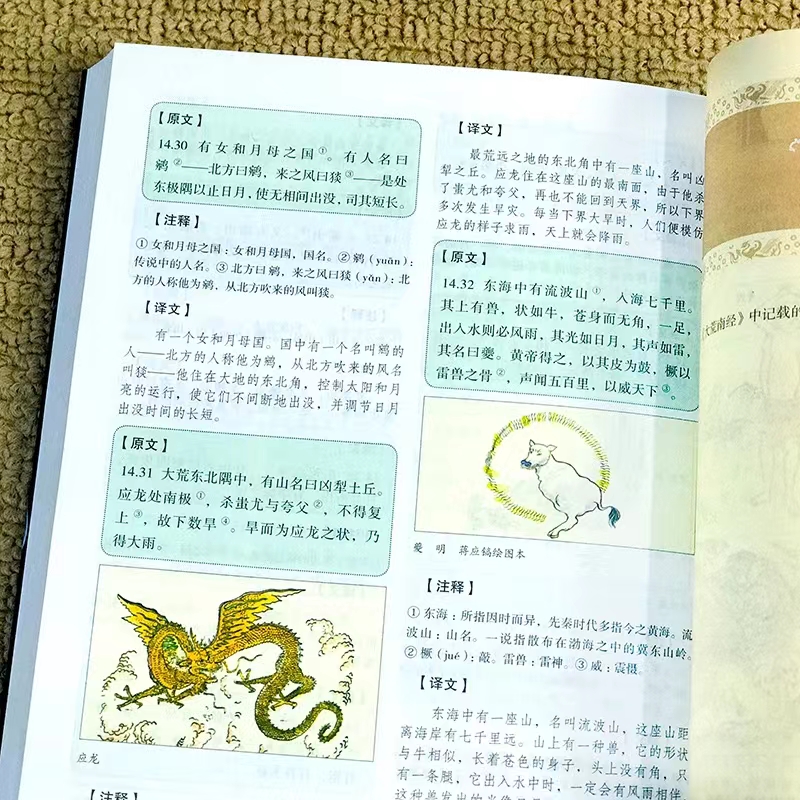 【原文】
14.30 有女和月母之国①。有人名曰
鹓②——北方曰鹓，来之风曰狻③——是处
东极隅以止日月，使无相间出没，司其短长。
【注释】
①女和月母之国：女和月母国，国名。②鹓（yuān）：
传说中的人名。③北方曰鹓，来之风曰狻（yǎn）：北
方的人称他为鹓，从北方吹来的风叫狻。
【译文】
有一个女和月母国。国中有一个名叫鹓的
人——北方的人称他为鹓，从北方吹来的风名
叫狻——他住在大地的东北角，控制太阳和月
亮的运行，使它们不间断地出没，并调节日月
出没时间的长短。
【原文】
14.31 大荒东北隅中，有山名曰凶犁土丘。
应龙处南极①，杀蚩尤与夸父②，不得复
上③，故下数旱④。旱而为应龙之状，乃
得大雨。
应龙
【注释】
【译文】
最荒远之地的东北角中有一座山，名叫凶
犁之丘。应龙住在这座山的最南面，由于他杀
了蚩尤和夸父，再也不能回到天界，所以下界
多次发生旱灾。每当下界大旱时，人们便模仿
应龙的样子求雨，天上就会降雨。
【原文】
14.32 东海中有流波山①，入海七千里。
其上有兽，状如牛，苍身而无角，一足，
出入水则必风雨，其光如日月，其声如雷，
其名曰夔。黄帝得之，以其皮为鼓，橛以
雷兽之骨②，声闻五百里，以威天下③。
夔 明 蒋应镐绘图本
【注释】
①东海：所指因时而异，先秦时代多指今之黄海。流
波山：山名。一说指散布在渤海之中的冀东山岭。
②橛（jué）：敲。雷兽：雷神。③威：震慑。
【译文】
东海中有一座山，名叫流波山，这座山距
离海岸有七千里远。山上有一种兽，它的形状
与牛相似，长着苍色的身子，头上没有角，只
有一条腿，它出入水中时，一定会有风雨相伴，
大荒南经》中记载的